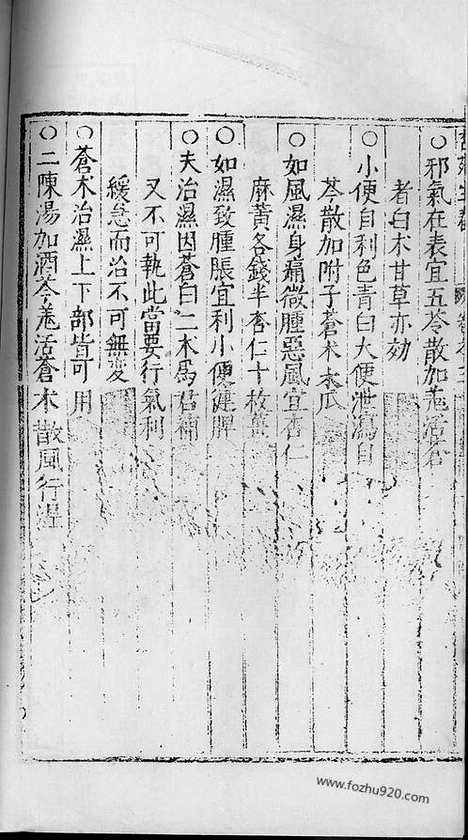 ○邪氣在表宜五苓散加羗活若
者白木甘草亦効
○小便自利色青白大便泄瀉自
苓散加附子蒼木木瓜
○如風濕身痛微腫惡風宜杏仁
麻黃各錢半杏仁十枚薑
○如濕致腫脹宜利小便健脾
○夫治濕因蒼白二木爲君補
又不可執此當要行氣利
緩急而治不可無變
○蒼木治濕上下部皆可用
○二陳湯加酒芩羗活蒼木散風行濕
www.fozhu920.com